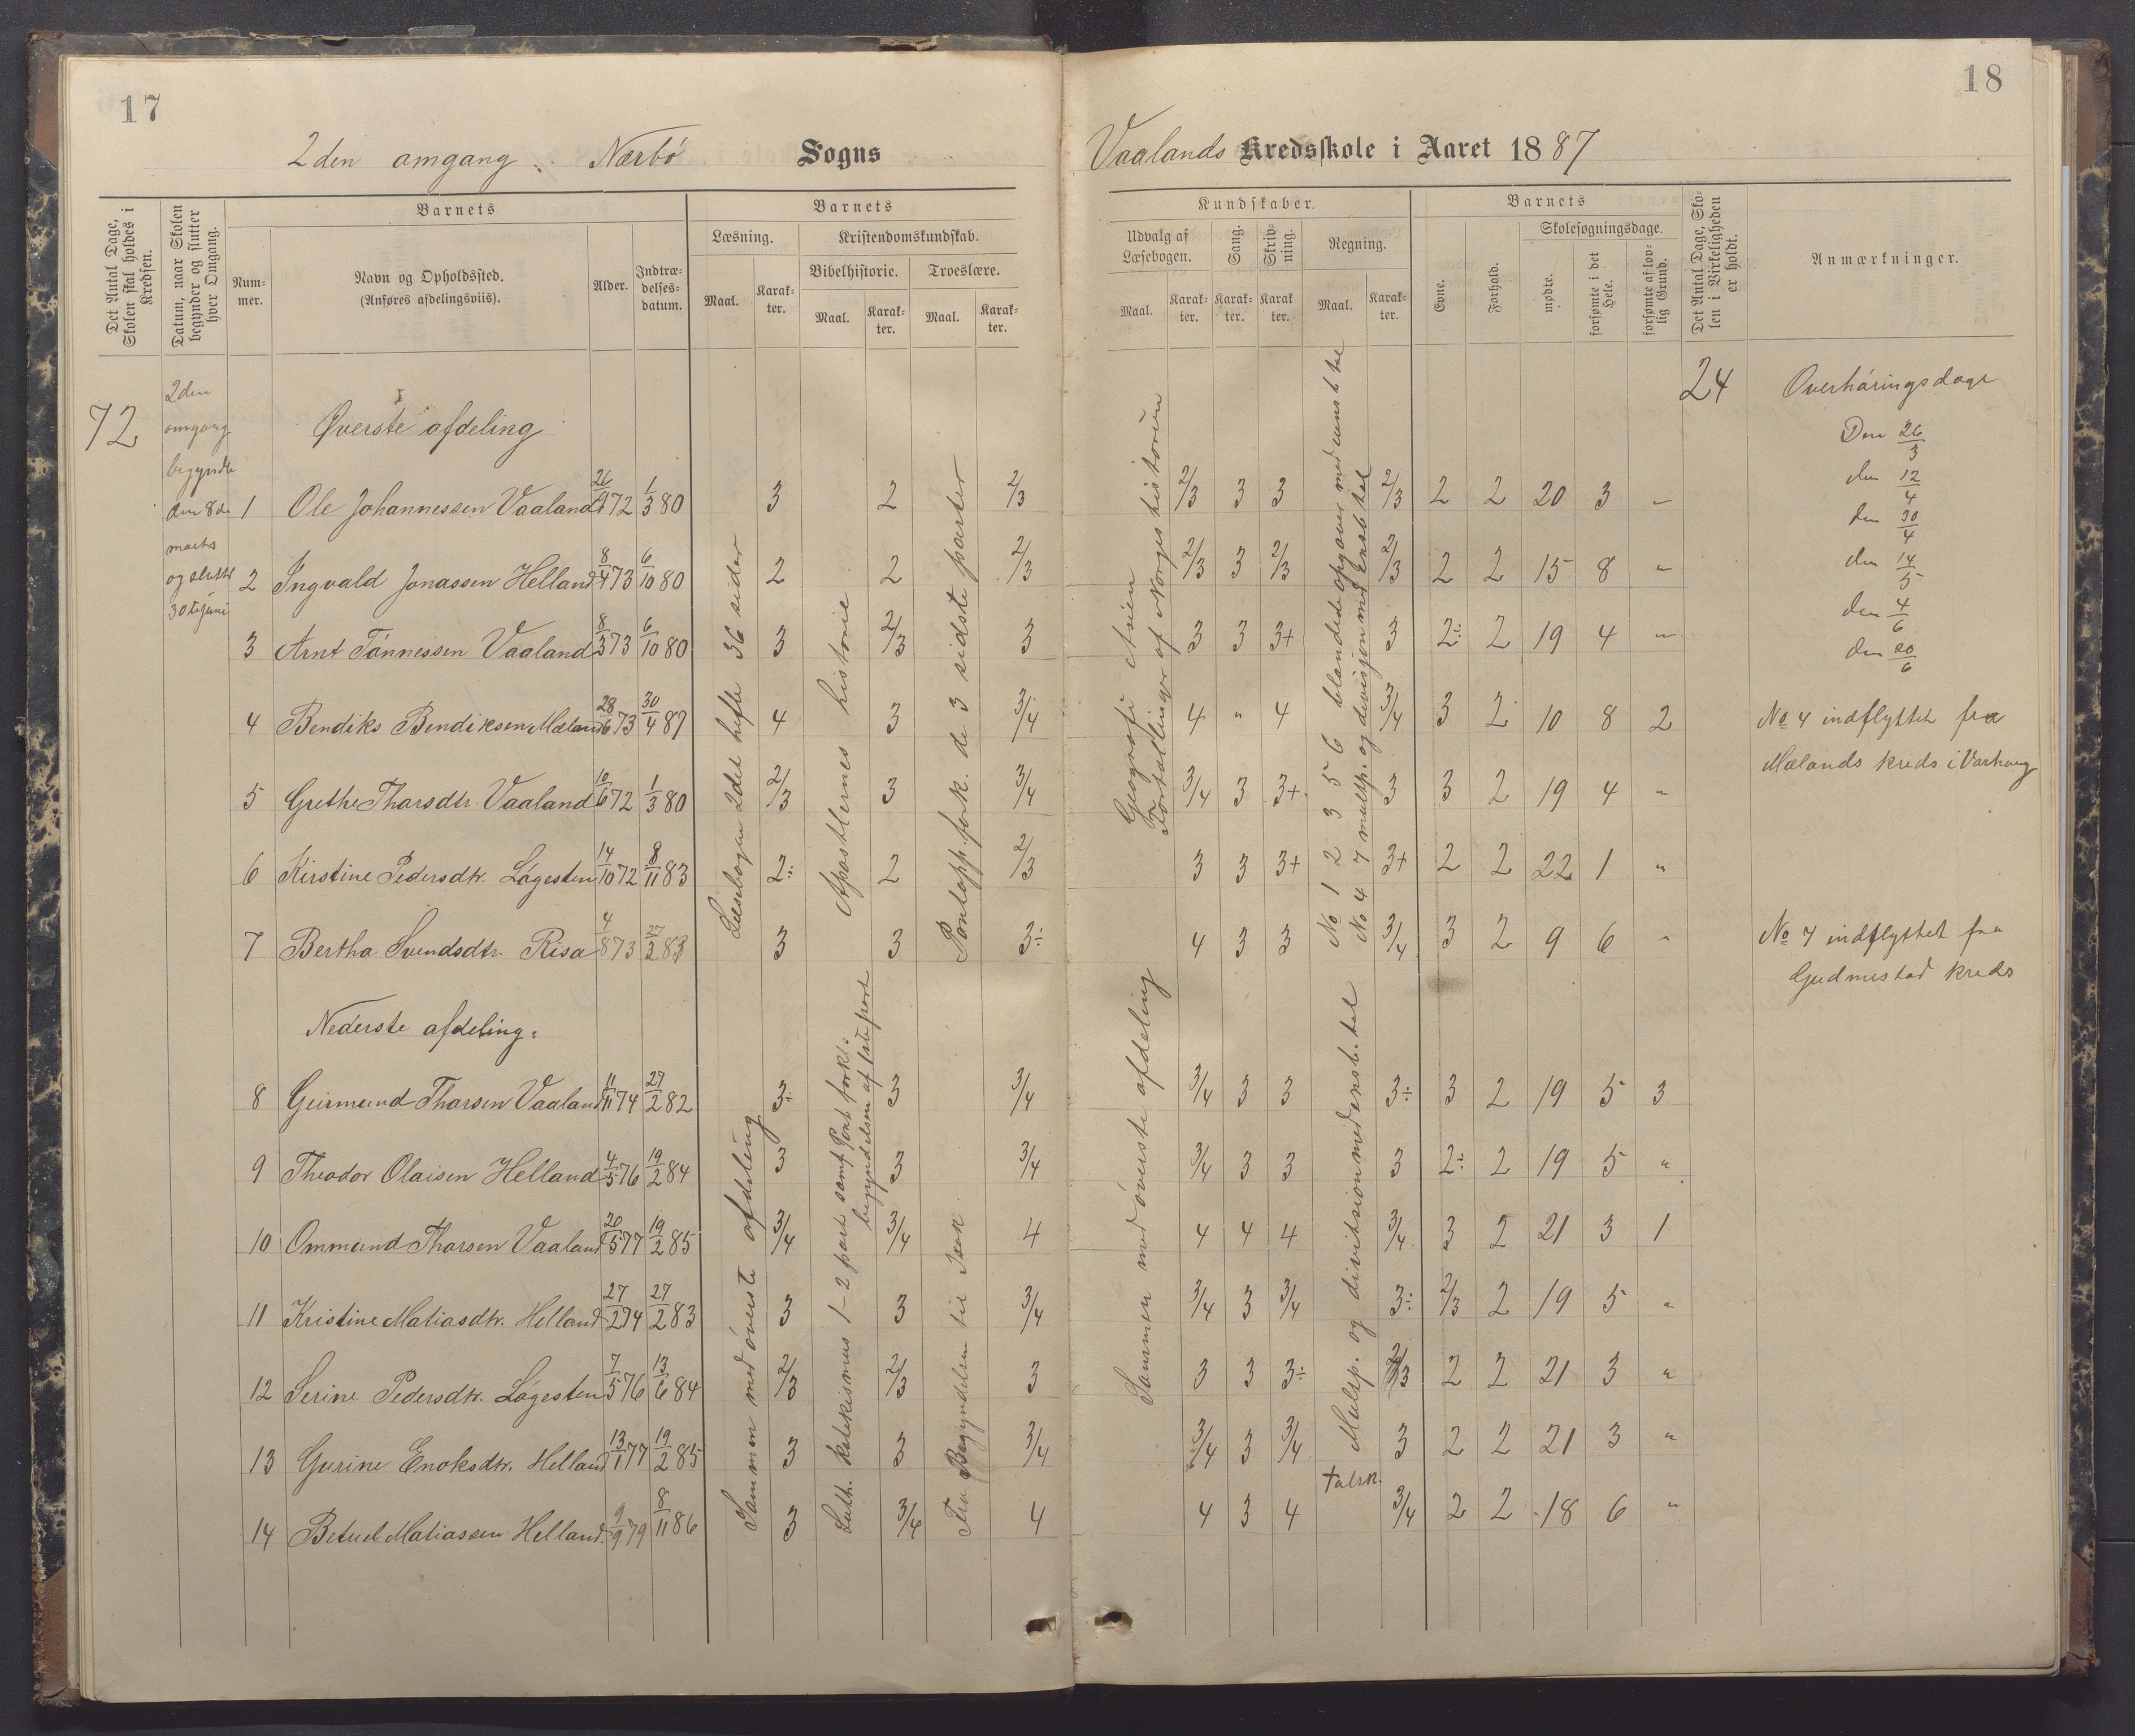 17
2den amgang. Nærbö Sogns
Det Antal Dage, Skolen skal holdes i Kredsen.
Datum, naar Skolen begynder og slutter hver Omgang.
Barnets
Nummer.
Navn og Opholdssted.
(Anføres afdelingsviis).
Alder.
Indtrædelsesdatum.
Barnets
Læsning.
Maal.
Karakter.
Kristendomskundskab.
Bibelhistorie.
Maal.
Karakter.
Troeslære.
Maal.
Karakter.
72
2den
omgang
begyndte
den 8de
marts
og sluttet
30te juni
Øverste afdeling
1 Ole Johannessen Vaaland 26/9 72 1/3 80 3 2 2/3
2 Ingvald Jonassen Helland 8/4 73 6/10 80 2 2 2/3
3 Arnt Tönnessen Vaaland 8/3 73 6/10 80 3 2/3 3
4 Bendiks Bendiksen Mæland 28/6 73 30/4 87 4 3 3/4
5 Grethe Tharsdtr. Vaaland 10/6 72 1/3 80 2/3 3 3/4
6 Kirstine Pedersdtr. Lögesten 14/10 72 8/11 83 2÷ 2 2/3
7 Bertha Svendsdtr. Risa 4/8 73 27/3 83 3 3 3÷
Læsebogen 2det hefte 36 sider
Apostlernes historie
Pontopp. fork. de 3 sidste parter
Nederste afdeling.
8 Geirmund Tharsen Vaaland 11/11 74 27/2 82 3÷ 3 3/4
9 Theodor Olaisen Helland 4/5 76 19/2 84 3 3 3/4
10 Ommund Tharsen Vaaland 20/5 77 19/2 85 3/4 3/4 4
11 Kristine Matiasdtr. Helland 27/2 74 27/2 83 3 3 3/4
12 Serine Pedersdtr. Lögesten 7/5 76 13/6 84 2/3 2/3 3
13 Gurine Enoksdtr. Helland 13/1 77 19/2 85 3 3 3/4
14 Betuel Matiassen Helland. 9/9 79 8/11 86 3 3/4 4
Sammen med överste afdeling
Luth. katekismus 1-2 part samt Pont fork!s
begyndelsen af 1ste part
Fra Begyndelsen til Isak
18
Vaalands Kredsskole i Aaret 1887
Kundskaber.
Udvalg af Læsebogen.
Maal.
Karakter.
Sang.
Karakter.
Skrivning.
Karakter.
Regning.
Maal.
Karakter.
Barnets
Evne.
Forhold.
Skolesøgningsdage.
mødte.
forsømte i det Hele.
forsømte af lovlig Grund.
Det Antal Dage, Skolen i Virkeligheden er holdt.
Anmærkninger.
24 Overhöringsdage
Den 26/3
den 12/4
den 30/4
den 14/5
den 4/6
den 20/6
2/3 3 3 2/3 2 2 20 3 "
2/3 3 2/3 2/3 2 2 15 8 "
3 3 3+ 3 2÷ 2 19 4 "
4 " 4 3/4 3 2 10 8 2 No 4 indflyttet fra
Mælands kreds i Varhaug
3/4 3 3+ 3 3 2 19 4 "
3 3 3+ 3+ 2 2 22 1 "
4 3 3 3/4 3 2 9 6 " No 7 indflyttet fra
Gudmestad kreds
Geografi Asien
Fortællinger af Norges historien
No 1 2 3 5 6 blandede opgaver med eensb tal
No 4 7 multp. og divisjon med ensb tal
3/4 3 3 3÷ 3 2 19 5 3
3/4 3 3 3 2÷ 2 19 5 "
4 4 4 3/4 3 2 21 3 1
3/4 3 3/4 3÷ 2/3 2 19 5 "
3 3 3÷ 2/3 2 2 21 3 "
3/4 3 3/4 3 2 2 21 3 "
4 3 4 3/4 2 2 18 6 "
Sammen med överste afdeling
Multp. og divitsion med ensb. tal